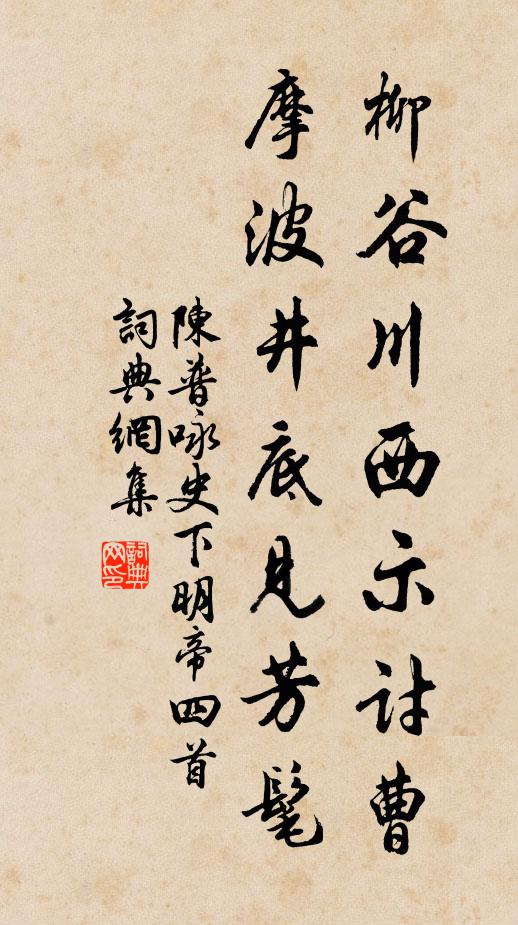 柳谷川西示討曹
摩波井底見芳髦
陳普咏史下明帝四首
詞典網集
詞典網印